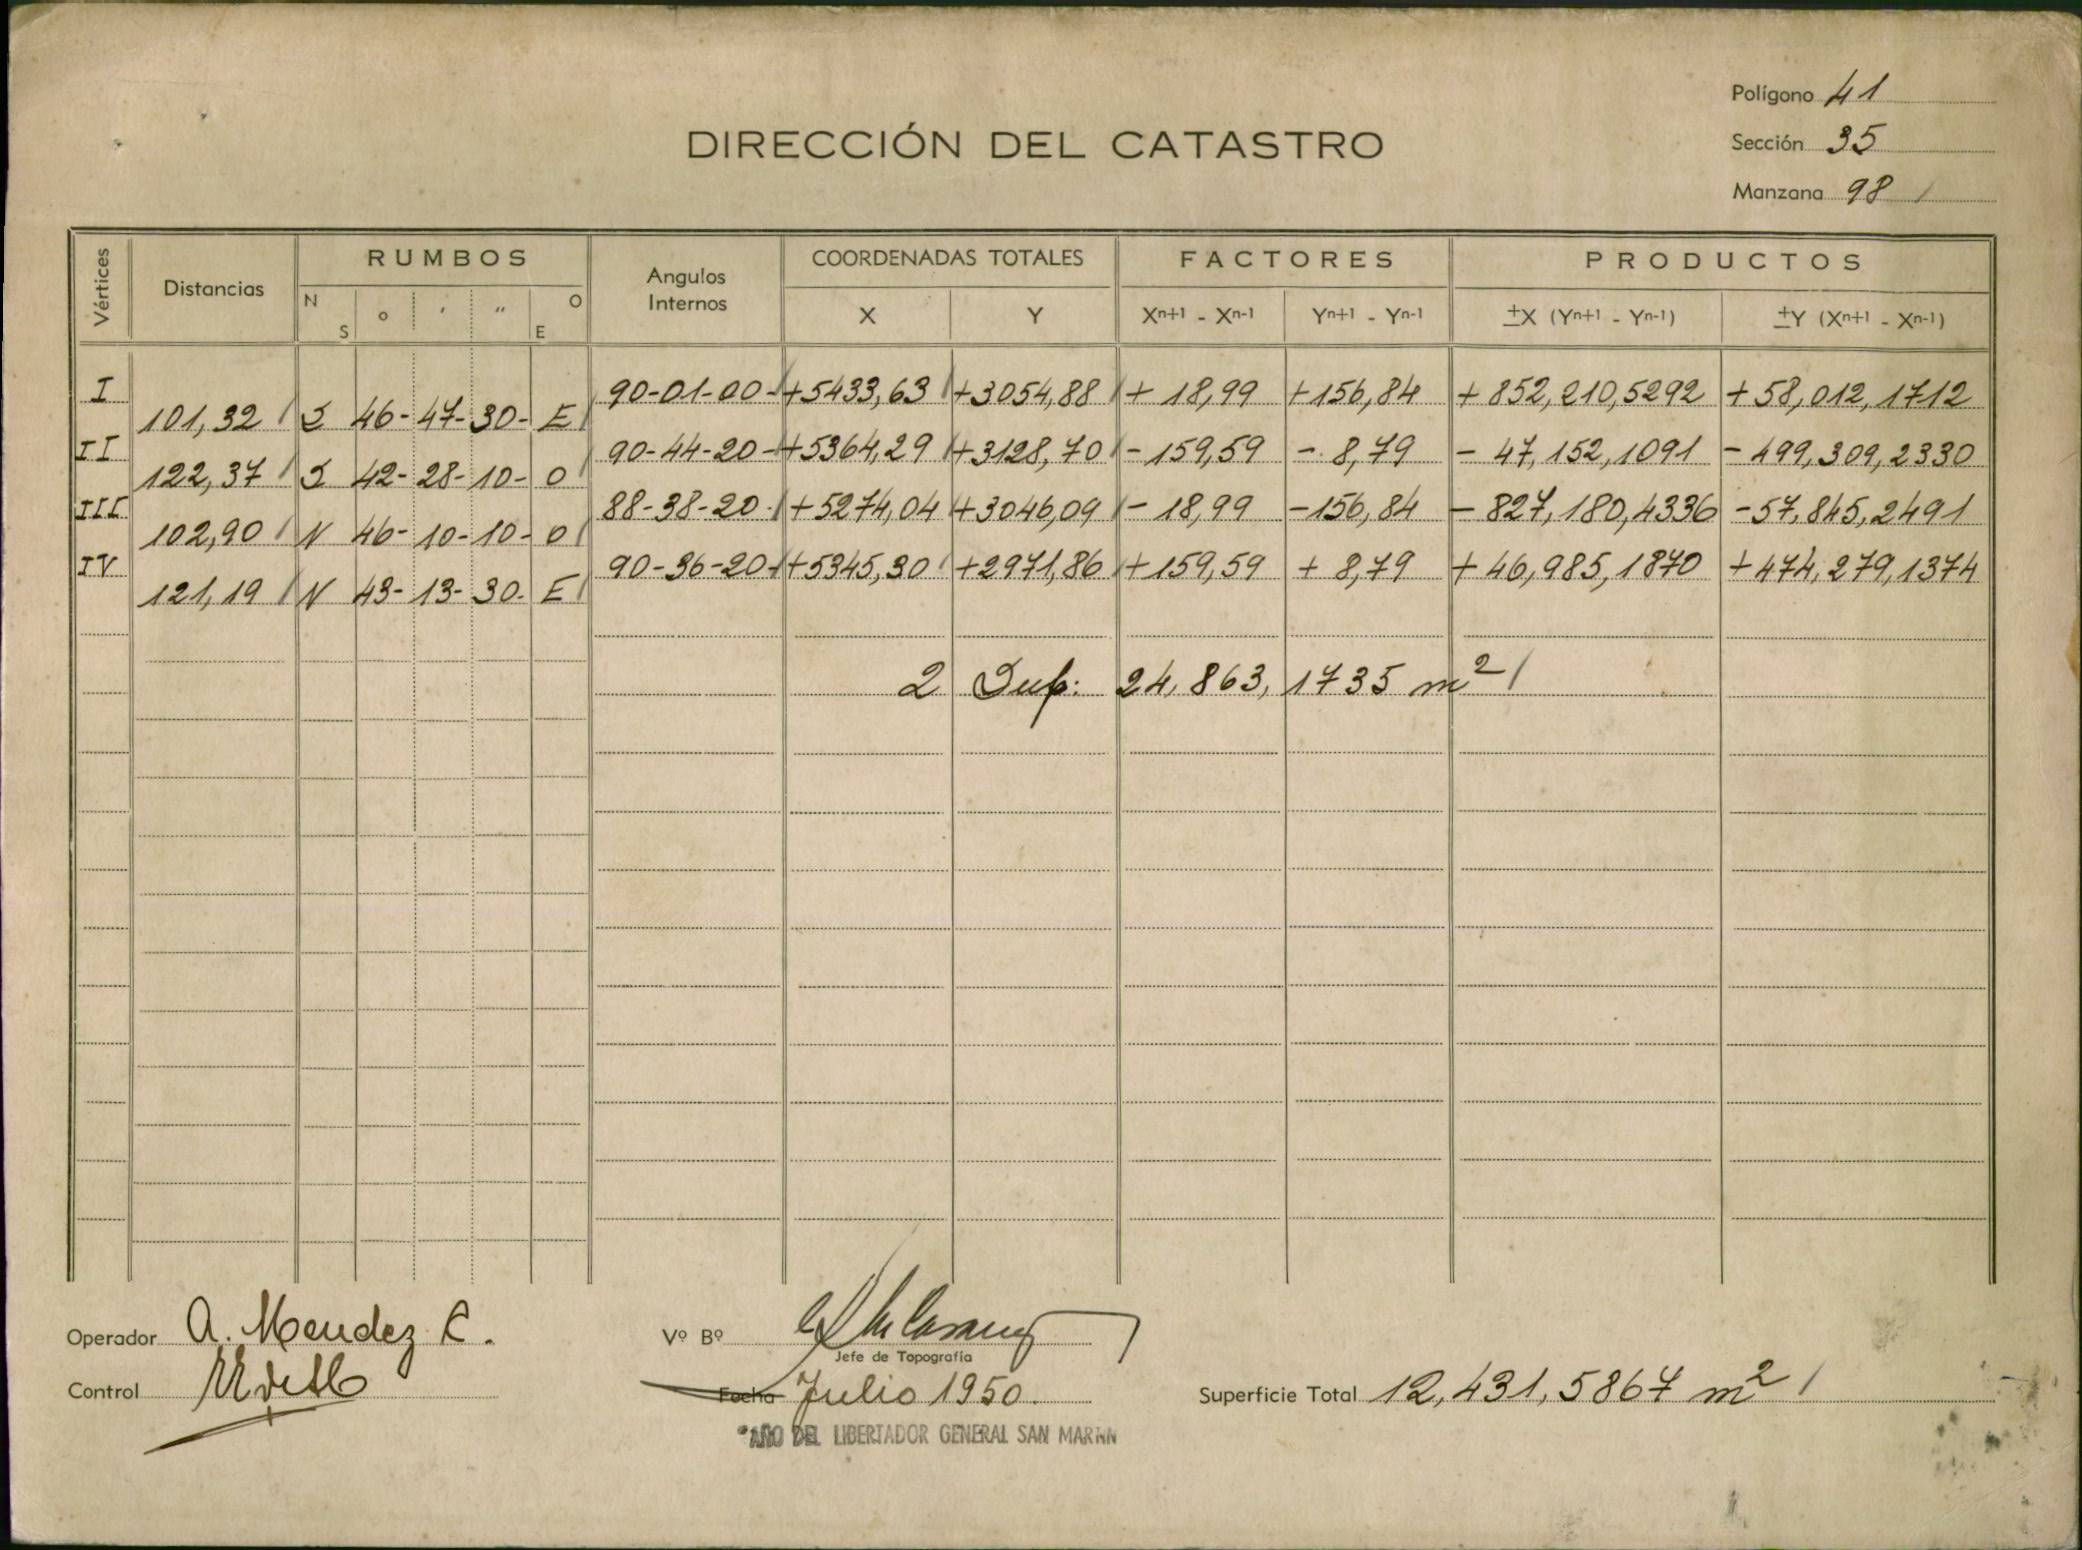 Polígono 41
DIRECCIÓN DEL CATASTRO
Sección 35
Manzana 98
Vértices Distancias RUMBOS Angulos Internos COORDENADAS TOTALES FACTORES PRODUCTOS
N S o ' " O E X Y Xn+1 - Xn-1 Yn+1 - Yn-1 ±X (Yn+1 - Yn-1) ±Y (Xn+1 - Xn-1)
I 90-01-00- +5433,63 +3054,88 + 18,99 +156,84 + 852,210,5292 + 58,012,1712
101,32 S 46- 47- 30- E
II 90-44-20- +5364,29 +3128,70 - 159,59 - 8,79 - 47,152,1091 - 499,309,2330
122,37 S 42- 28- 10- O
III 88-38-20- +5274,04 +3046,09 - 18,99 -156,84 - 827,180,4336 -57,845,2491
102,90 N 46- 10- 10- O
IV 90-36-20- +5345,30 +2971,86 +159,59 + 8,79 + 46,985,1870 + 474,279,1374
121,19 N 43- 13- 30- E
2 Sup: 24,863,1735 m²
Operador A. Mendez C.
Vº Bº
Jefe de Topografía
Control
Fecha Julio 1950.
Superficie Total 12,431,5867 m²
"AÑO DEL LIBERTADOR GENERAL SAN MARTIN